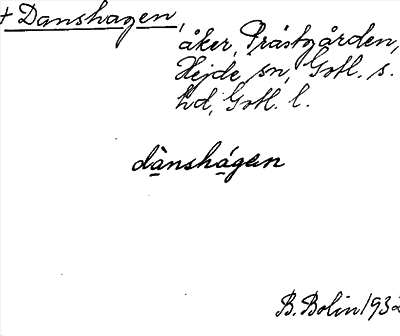 + Danshagen,
åker, Prästgården,
Hejde sn, Gotl. s.
hd, Gotl. l.
dànshágen
B. Bolin 1932